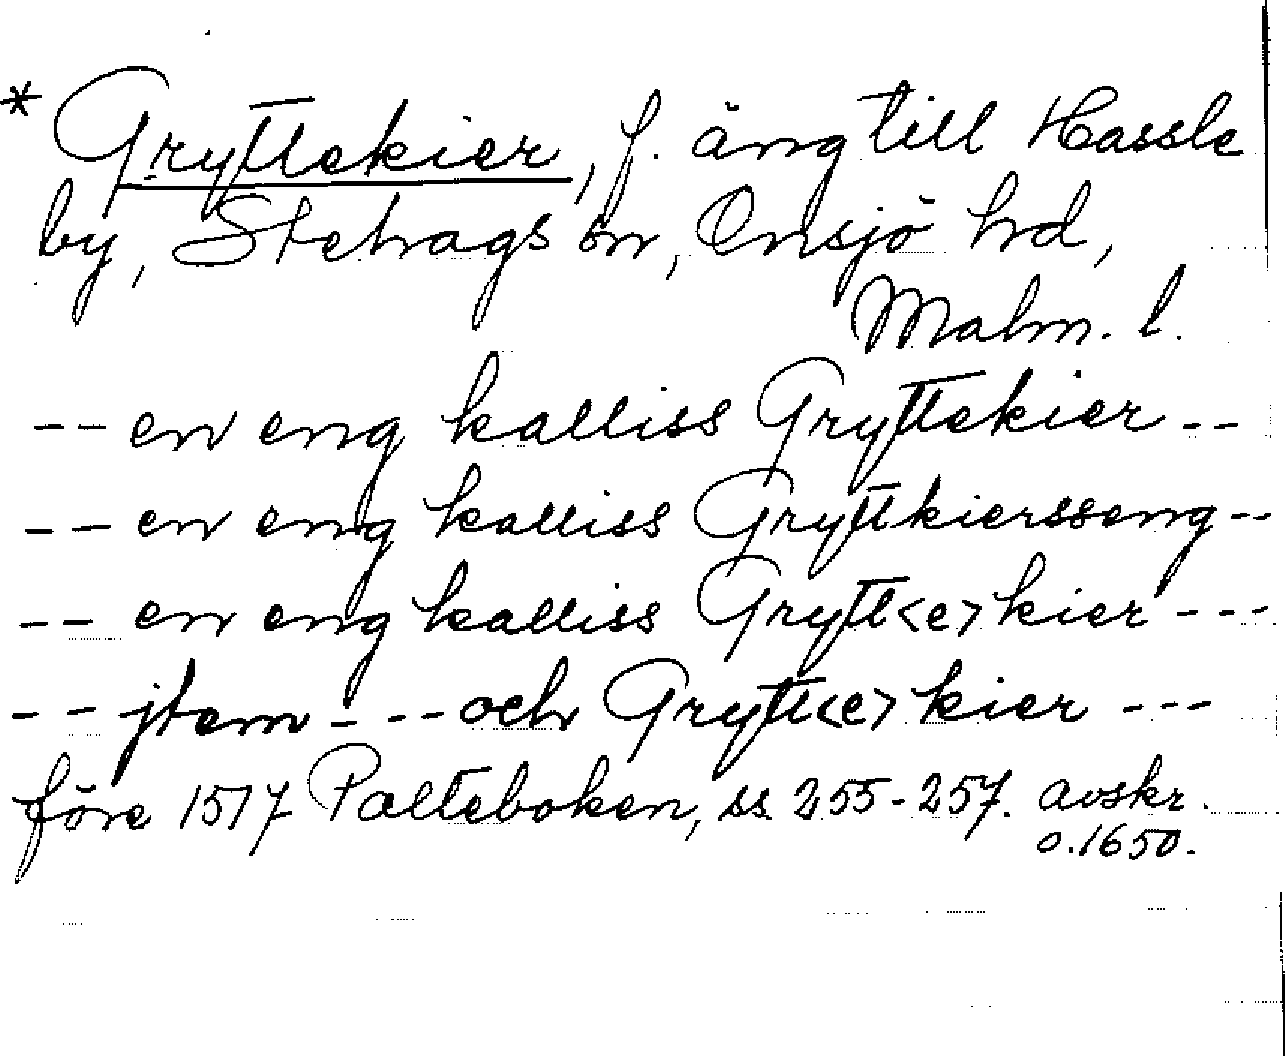 * Gryttekier, f. äng till Hassle
by, Stehags sn, Onsjö hd,
Malm. l.
-- en eng kalliss Gryttekier --
-- en eng kalliss Gryttkiersseng --
-- en eng kalliss Grytt<e>kier ---
-- jtem - -- och Grytt<e>kier ---
före 1517 Palteboken, ss. 255-257. avskr.
o. 1650.